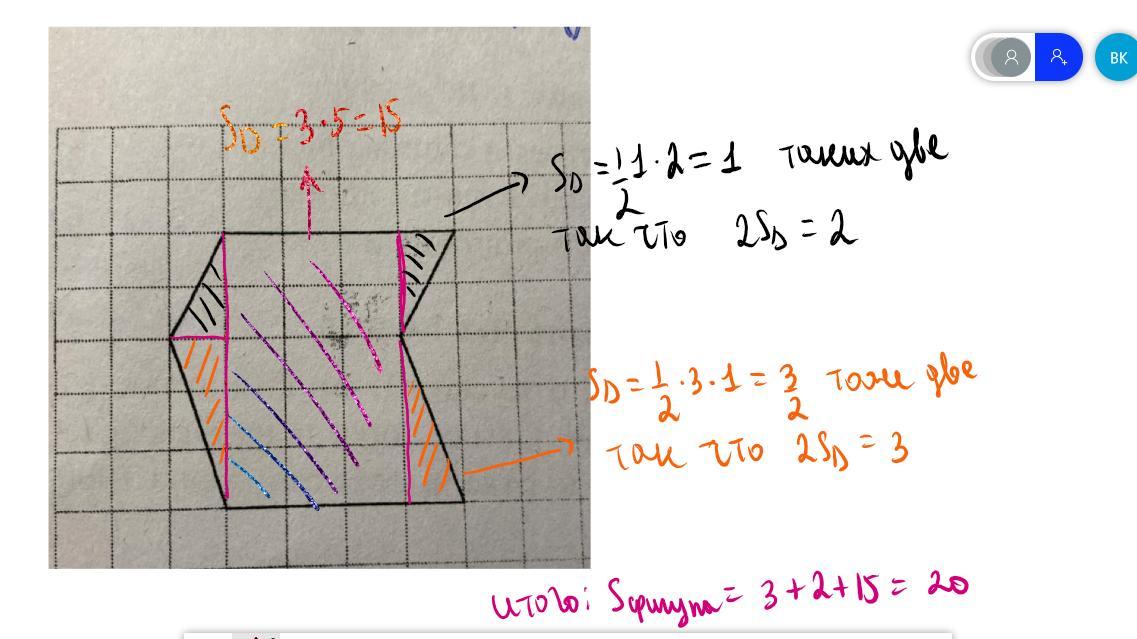 S▯ = 3·5=15
BK
S△ = 1/2 1·2 = 1 таких две
так что 2S△ = 2
S△ = 1/2 · 3 · 1 = 3/2 тоже две
так что 2S△ = 3
итого: Sфигуры = 3+2+15 = 20